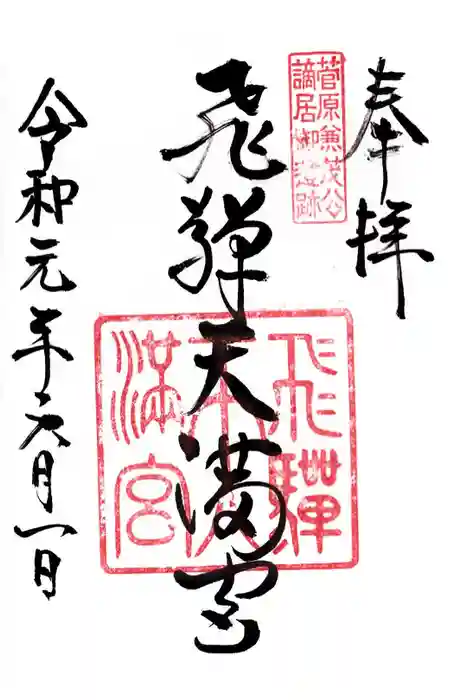 奉拝
菅原兼茂公
謫居御遺跡
飛騨天満宮
飛驒
天満宮
令和元年六月一日